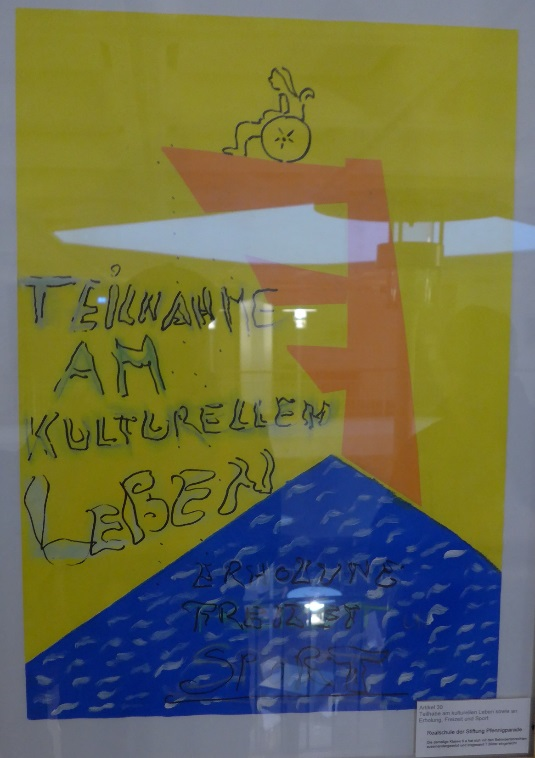 TEiLNAHME
AM
KULTURELLEN
LEBEN
ERHOLUNG
FREIZEIT
SPORT
Artikel 30
Teilhabe am kulturellen Leben sowie an
Erholung, Freizeit und Sport
Realschule der Stiftung Pfennigparade